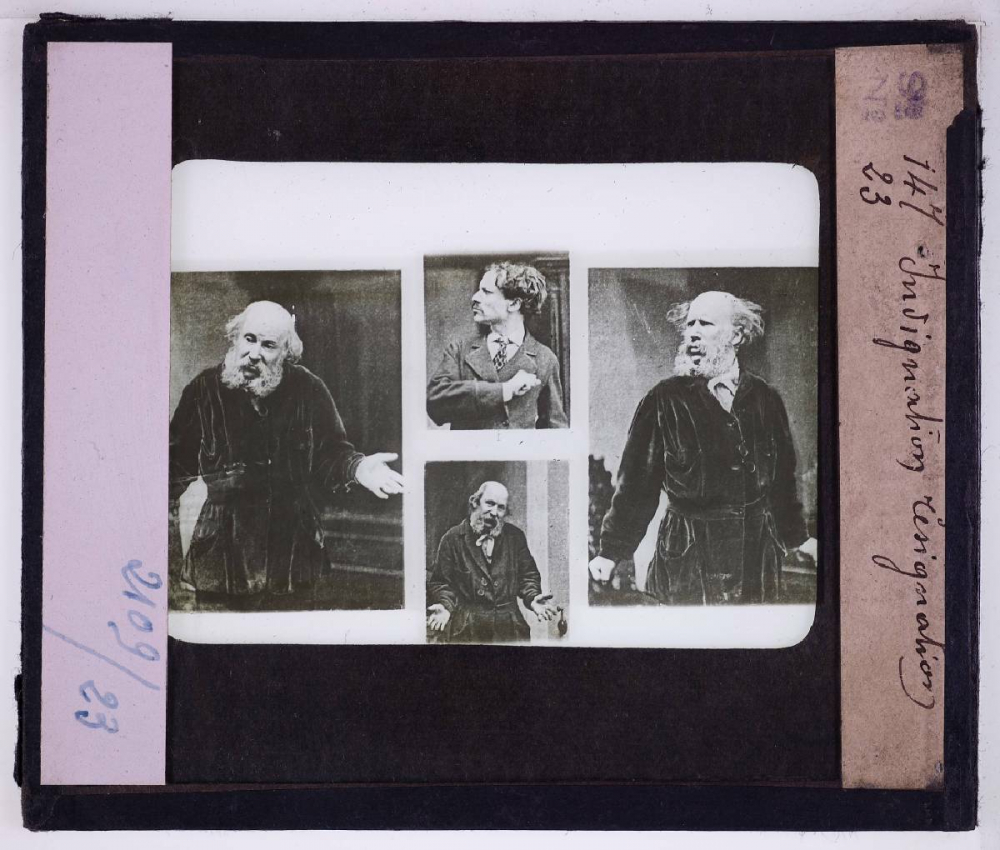 147 Indignation, résignation
23
2109/23